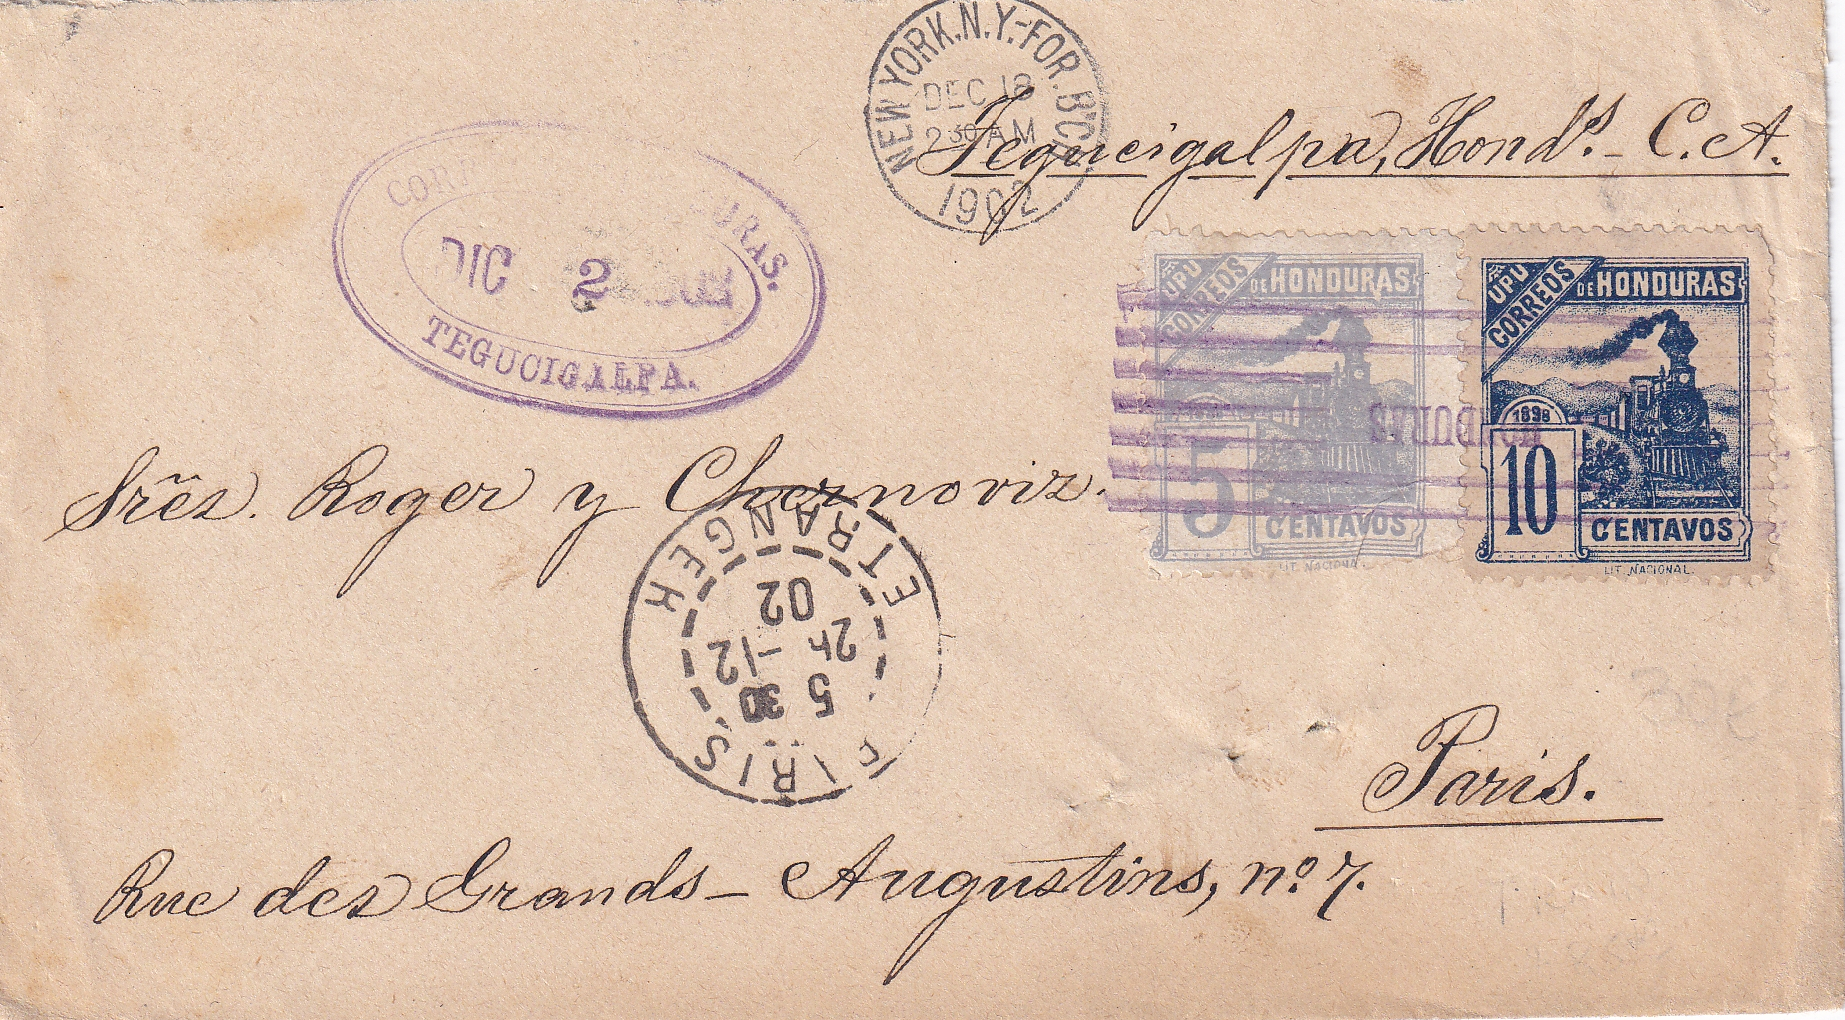 NEW YORK. N.Y.-FOR. B'CH
DEC 18
2 30 AM
1902
Tegucigalpa, Hond.s - C. A.
URAS.
DIC 2
TEGUCIGALPA.
UPU
CORREOS
DE HONDURAS
5
CENTAVOS
LIT. NACIONAL.
UPU
CORREOS
DE HONDURAS
1898
10
CENTAVOS
LIT. NACIONAL.
HONDURAS
Sres. Roger y Chernoviz.
ETRANGER
02
2h -12
5 30
Paris.
Rue des Grands-Augustins, nº 7.